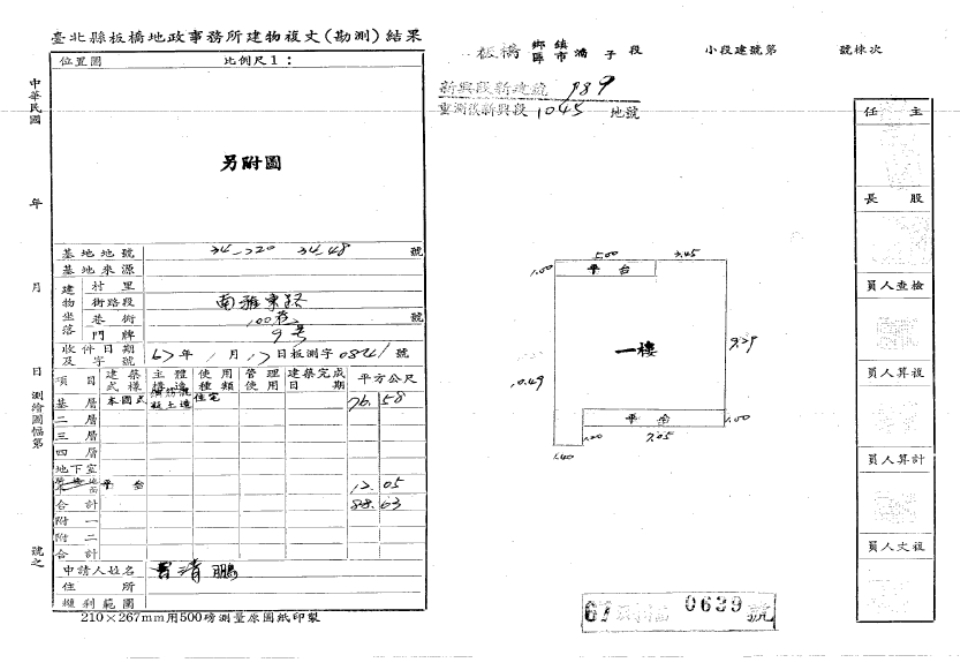 臺北縣板橋地政事務所建物複丈(勘測)結果
位置圖 比例尺1：
另附圖
中華民國 年 月 日測繪圖幅第 號之
基地地號 34-220 34-48 號
基地來源
建物坐落 村里
街路段 南雅東路
巷衖 100巷 號
門牌 9号
收件日期及字號 67年1月17日板測字 號
項目 建築式樣 主體構造 使用種類 管理使用 建築完成日期 平方公尺
基層 本國式 住宅 76.58
二層
三層
四層
地下室
平台 12.05
合計 88.63
附一
附二
合計
申請人姓名 清鵬
住所
權利範圍
210×267mm用500磅測量原圖紙印製
板橋 鄉鎮市區 湳子 段 小段建號第 號棟次
新興段新建號 989
重測後新興段 1045 地號
5.00 3.45
1.00 平台
一樓
9.29
10.49
平台 1.00
1.00 7.05
1.40
任主
長股
員人查檢
員人算複
員人算計
員人丈複
67 0639 號